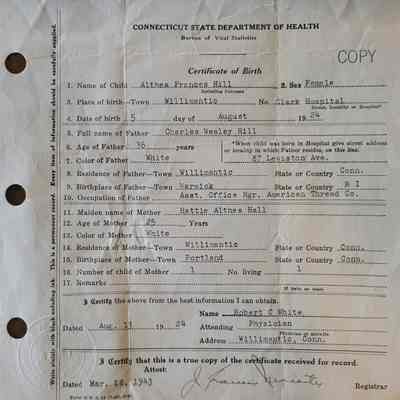 CONNECTICUT STATE DEPARTMENT OF HEALTH
Bureau of Vital Statistics
COPY
Certificate of Birth
1. Name of Child Althea Frances Hill 2. Sex Female
Including Surname
3. Place of birth—Town Willimantic No. Clark Hospital
Street, Locality or Hospital*
4. Date of birth 5 day of August 1924
5. Full name of Father Charles Wesley Hill
6. Age of Father 36 years *When child was born in Hospital give street address or locality in which Father resides, on this line.
7. Color of Father White 87 Lewiston Ave.
8. Residence of Father—Town Willimantic State or Country Conn.
9. Birthplace of Father—Town Warwick State or Country R I
10. Occupation of Father Asst. Office Mgr. American Thread Co.
11. Maiden name of Mother Hattie Althea Hall
12. Age of Mother 25 Years
13. Color of Mother White
14. Residence of Mother—Town Willimantic State or Country Conn.
15. Birthplace of Mother—Town Portland State or Country Conn.
16. Number of child of Mother 1 No. living 1
17. Remarks
If twin so state
I Certify the above from the best information I can obtain.
Name Robert C White
Dated Aug. 13 1924 Attending Physician
Physician or midwife
Address Willimantic, Conn.
I Certify that this is a true copy of the certificate received for record.
Attest:
Dated Mar. 1943 Registrar